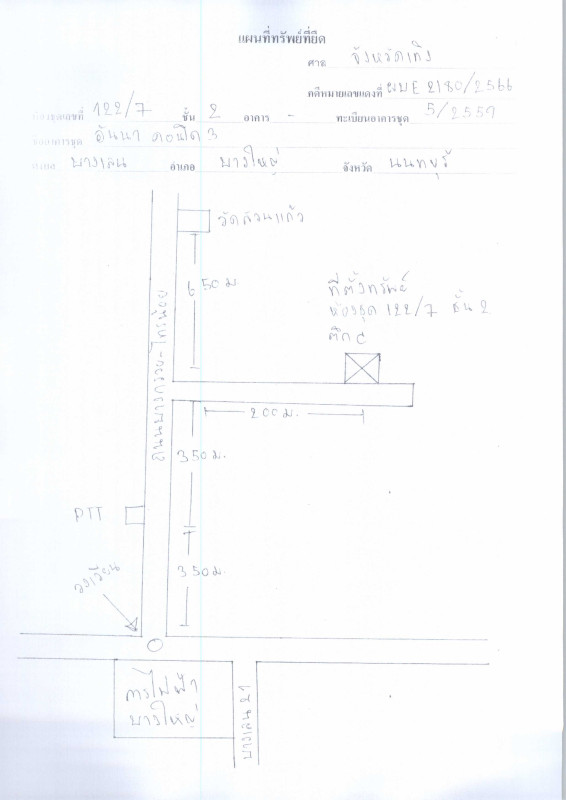 แผนที่ทรัพย์ที่ยึด
ศาล จังหวัดเทิง
คดีหมายเลขแดงที่ ผบE 2180/2566
ห้องชุดเลขที่ 122/7 ชั้น 2 อาคาร - ทะเบียนอาคารชุด 5/2557
ชื่ออาคารชุด อันนา คอนโด 3
ตำบล บางเลน อำเภอ บางใหญ่ จังหวัด นนทบุรี
วัดสวนแก้ว
650 ม.
ที่ตั้งทรัพย์
ห้องชุด 122/7 ชั้น 2
ตึก C
ถนนบางกรวย-ไทรน้อย
200 ม.
350 ม.
PTT
350 ม.
วงเวียน
การไฟฟ้า
บางใหญ่
บางเลน 21